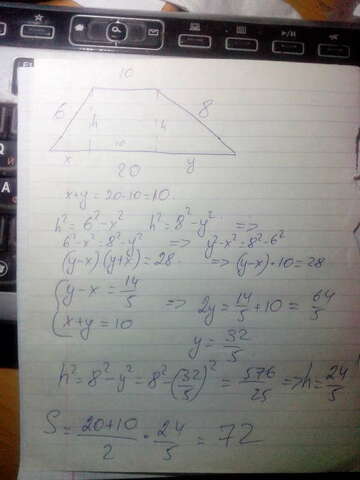 10
6 h h 8
x 10 y
20
x+y=20-10=10.
h²=6²-x² h²=8²-y² =>
6²-x²=8²-y² => y²-x²=8²-6²
(y-x)(y+x)=28. => (y-x)·10=28
{ y-x=14/5 => 2y=14/5+10=64/5
x+y=10 y=32/5
h²=8²-y²=8²-(32/5)²=576/25=>h=24/5
S=(20+10)/2·24/5=72